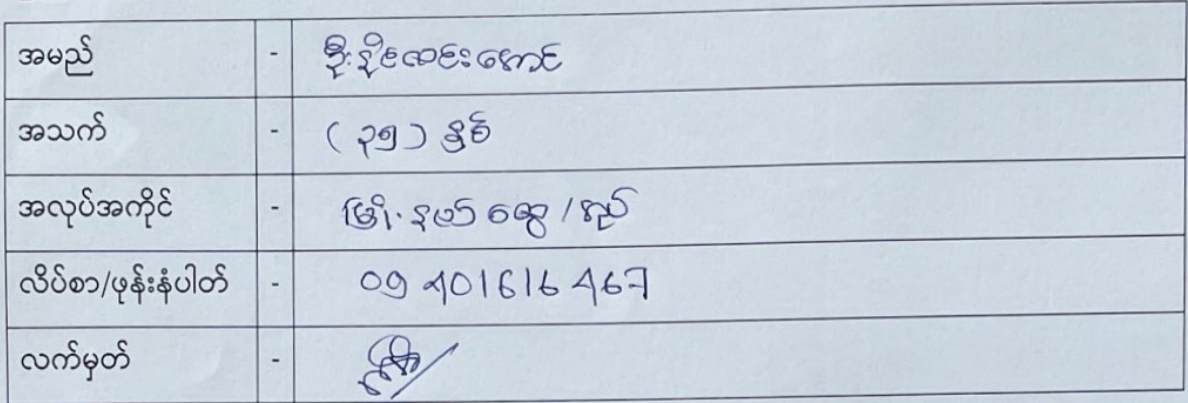 အမည် - ဦးနိုင်လင်းအောင်
အသက် - (၃၅) နှစ်
အလုပ်အကိုင် - မြို့နယ်ရွေး/စည်
လိပ်စာ/ဖုန်းနံပါတ် - 09 401616 467
လက်မှတ် -